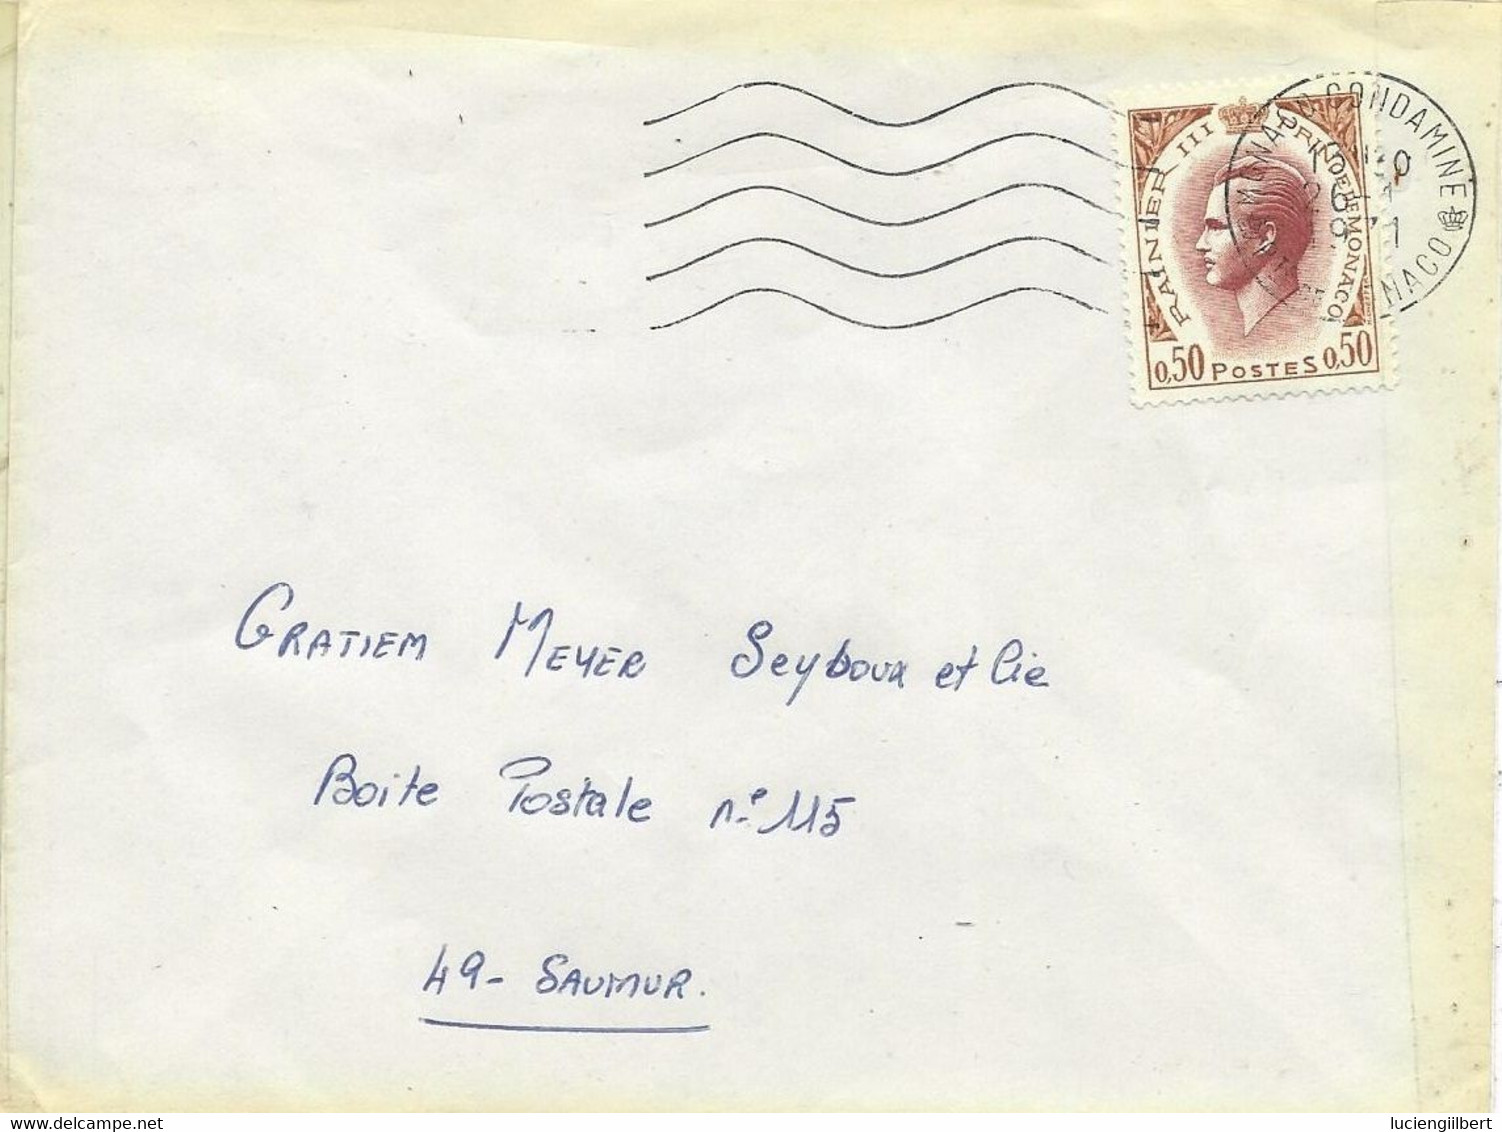 MONACO CONDAMINE
MONACO
1971
RAINIER III PRINCE DE MONACO
0,50 POSTES 0,50
GRATIEM MEYER Seyboux et Cie
Boite Postale n° 115
49 - SAUMUR.
delcampe.net
luciengilbert